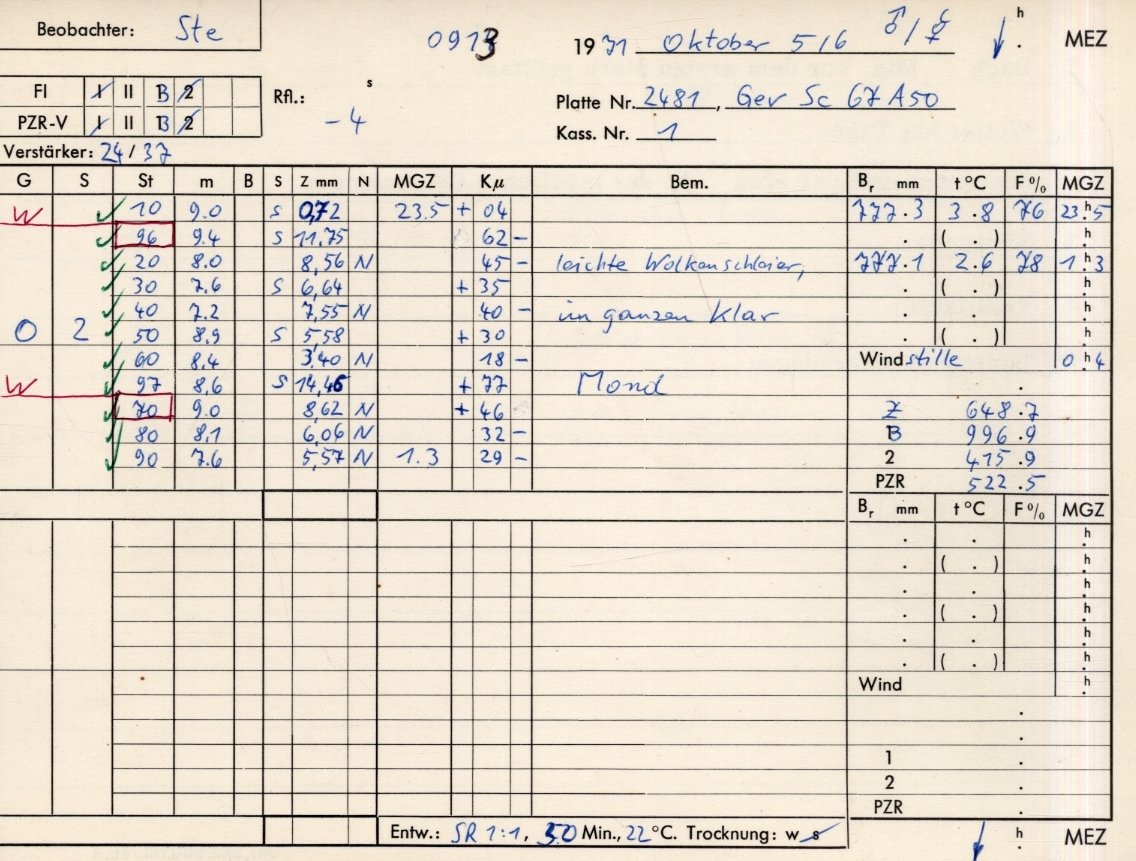 Beobachter: Ste
0913 1971 Oktober 5/6 ♂/☿ h . MEZ
FI I II B 2 Rfl.: s -4 Platte Nr. 2481, Gev Sc 67 A50
PZR-V I II B 2 Kass. Nr. 1
Verstärker: 24 / 37
G S St m B S Z mm N MGZ Kμ Bem. Br mm t °C F % MGZ
W 10 9.0 S 0,72 23.5 + 04 777.3 3.8 76 23 h 5
96 9.4 S 11.75 62 - . ( . ) h
20 8.0 8,56 N 45 - leichte Wolkenschleier, 777.1 2.6 78 1 h 3
30 7.6 S 6,64 + 35 . ( . ) h
40 7.2 7,55 N 40 - im ganzen klar . . h
0 2 50 8.9 S 5,58 + 30 . ( . ) h
60 8.4 3,40 N 18 - Wind stille 0 h 4
W 97 8,6 S 14,46 + 77 Mond .
70 9.0 8,62 N + 46 Z 648.7
80 8.1 6,06 N 32 - B 996.9
90 7.6 5,57 N 1.3 29 - 2 415.9
PZR 522.5
Br mm t °C F % MGZ
. . h
. ( . ) h
. . h
. ( . ) h
. . h
. ( . ) h
Wind h
.
.
1 .
2 .
PZR .
Entw.: SR 1:1, 5.0 Min., 22 °C. Trocknung: w s h . MEZ